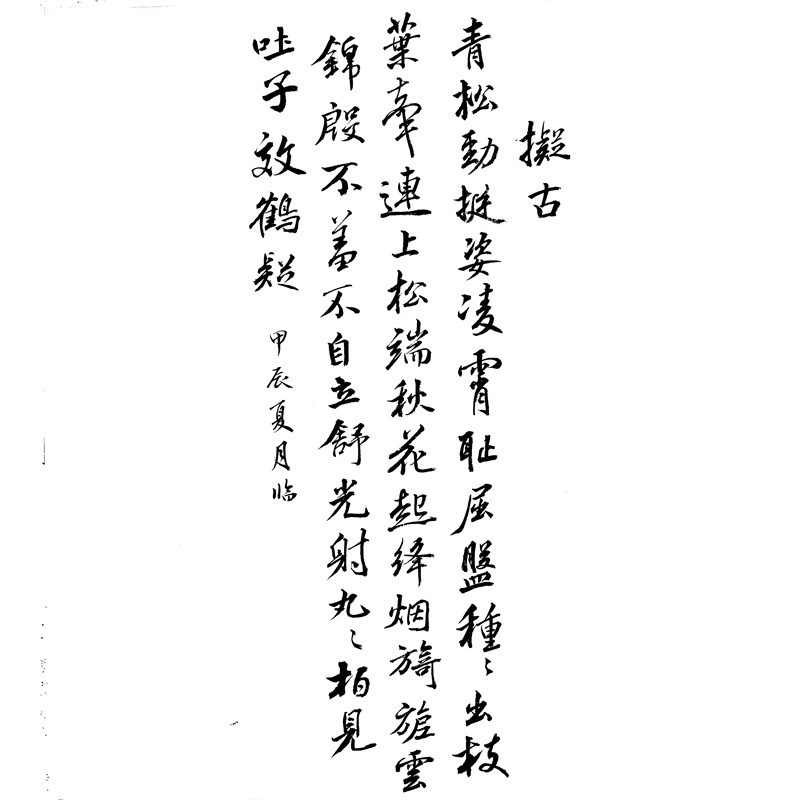 擬古
青松勁挺姿凌霄耻屈盤種〻出枝
葉牽連上松端秋花起絳烟旖旎雲
錦殷不羞不自立舒光射丸〻柏見
吐子效鶴疑
甲辰夏月临